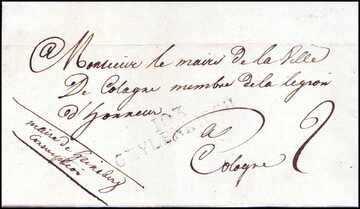 @ Monsieur le maire de la Ville
De Cologne membre de la legion
d'honneur
103
a
Cologne 2
maire de